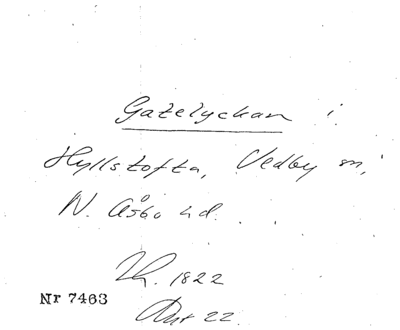 Gatelyckan i
Hyllstofta, Vedby sn,
N. Åsbo hd.
1822
Nr 7463
Akt 22